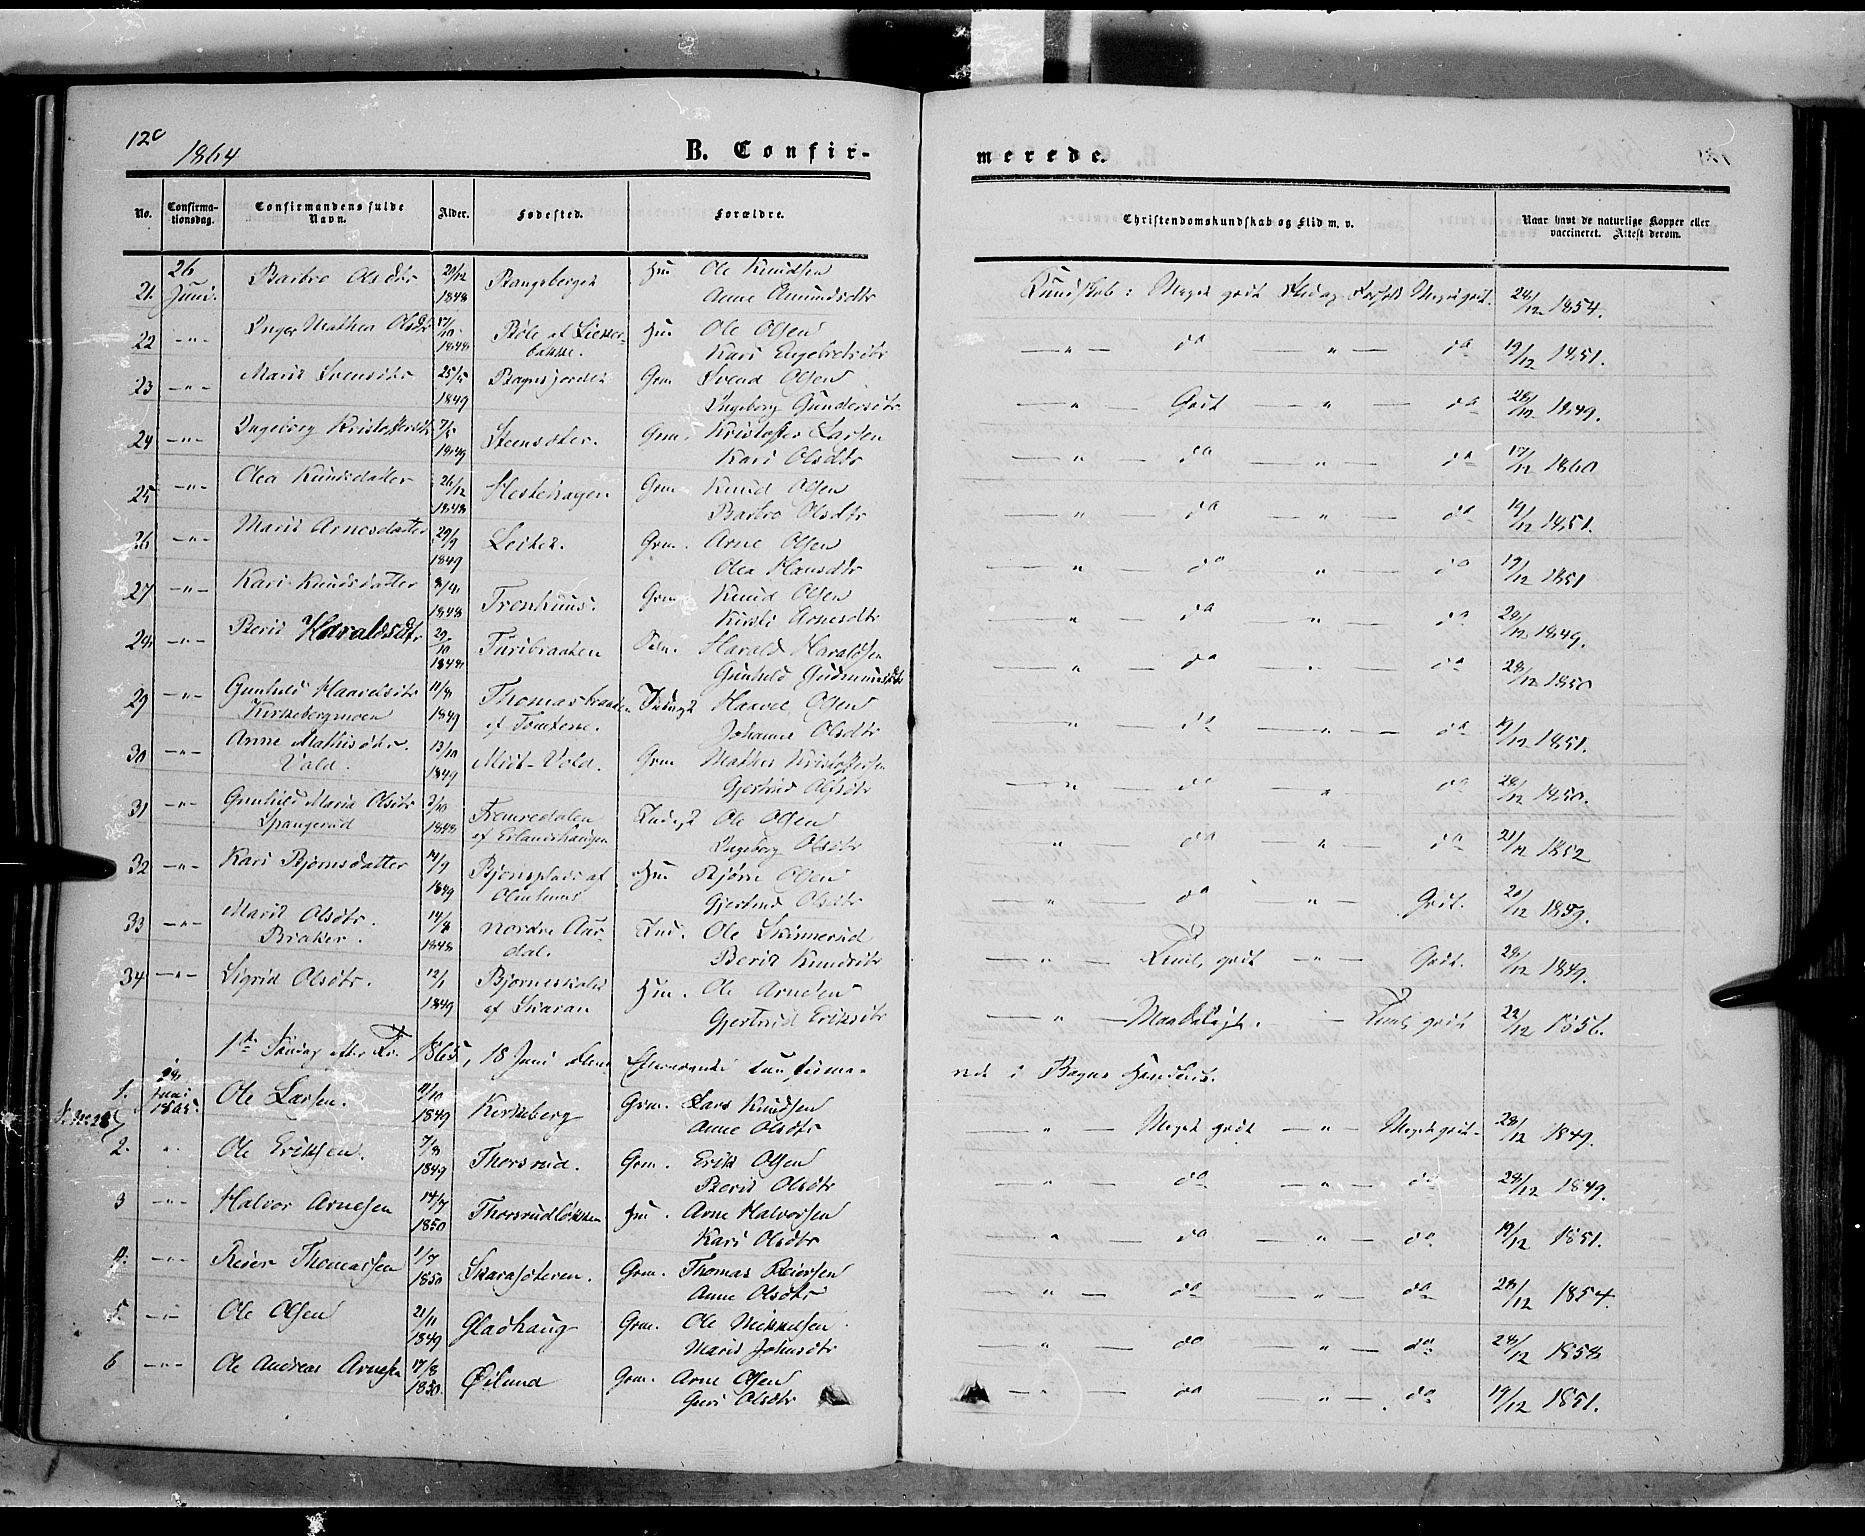 120
1864
B. Confir-
merede.
No.
Confirma-
tionsdag.
Confirmandens fulde
Navn.
Alder.
Fødested.
Forældre.
Christendomskundskab og Flid m. v.
Naar havt de naturlige Kopper eller
vaccineret. Attest derom.
21. 26 Juni. Barbro Olsdtr 20/12 1848 Bangsberget Hm Ole Knudsen
Anne Amundsdtr
Kundskab: Meget godt Flid og Forhold Meget godt. 1854.
22 -"- Inger Mathea Olsdtr 1848 Hm Ole Olsen
Kari Engebretsdtr
—"— do —"— do 19/12 1851.
23 -"- Marit Svensdtr 25/5 1849 Bagnsjordet Grm. Svend Olsen
Ingeborg Gundersdtr
" — Godt — " — do 28/12 1849.
24 -"- Kristoffersdtr 7/5 1849 Steensæter. Grm. Kristoffer Larsen
Kari Olsdtr
—"— do —"— do 17/12 1860
25 -"- Olea Knudsdatter 26/12 1848 Hestehagen Grm. Knud Olsen
Barbro Olsdtr
—"— do —"— do 19/12 1851.
26 -"- Marit Arnesdatter 29/9 1849 Leitet. Grm. Arne Olsen
Olea Hansdtr
—"— do —"— do 19/12 1851
27 -"- Kari Knudsdatter 1848 Tronhuus. Grm Knud Olsen
Kirsti Arnesdtr
—"— do —"— do 28/12 1849.
28 -"- Berit Haraldsdtr 29/10 1848 Turibraaten Harald Haraldsen
Gunhild Gudmundsdtr
—"— do —"— do 28/12 1850
29 -"- Gunhild Haavelsdtr
Kirkebergmoen 11/8 1849 Thomasbraaten
af Tomterne. Indrgt Haavel Olsen
Johanne Olsdtr
—"— do —"— do 19/12 1851.
30 -"- Anne Mathisdtr.
Vold. 13/10 1849 Midt-Vold. Grm Mathis Kristoffersen
Gjertrud Olsdtr
—"— do —"— do 28/12 1850.
31 -"- Gunhild Maria Olsdtr
Spangerud 1848
af Erlandshaugen Indrgt Ole Olsen
Ingeborg Olsdtr
—"— do —"— do 21/12 1852
32 -"- Kari Bjørnsdatter 14/9 1849 Bjørnsplads af
Hm Bjørn Olsen
Gjertrud Olsdtr
—"— do —"— Godt. 20/12 1859.
33 -"- Marit Olsdtr.
Braker. 14/8 1848 Nordre Aur-
dal. Ind. Ole Skinnerud
Berit Knudsdtr
—"— Temli. godt —"— Godt. 28/12 1849.
34 -"- Sigrid Olsdtr. 12/1 1849
af Skaran Hm. Ole Arnesen
Gjertrud Eriksdtr
—"— Maadeligt. — Temli godt 22/12 1856.
1ste Søndag efter Tr. 1865, 18 Juni bleve Efternævnte konfirme-
rede i Bagns Hovedkirke.
1. 18 Juni 1865. Ole Larsen. 11/10 1849 Kirkeberg Grm. Lars Knudsen
Anne Olsdtr
—"— Meget godt —"— Meget godt 28/12 1849.
2. " Ole Eriksen. 7/8 1849 Thorsrud. Grm. Erik Olsen
Berit Olsdtr
—"— do —"— do 28/12 1849.
3 -"- Halvor Arnesen 14/7 1850 Thorsrudløkken Hm. Arne Halvorsen
Kari Olsdtr
—"— do —"— do 19/12 1851.
4. -"- Reier Thomassen 1/7 1850 Skarasæteren. Grm. Thomas Reiersen
Anne Olsdtr
—"— do —"— do 28/12 1854.
5. -"- Ole Olsen 21/11 1849 Gladhaug Grm. Ole Mikkelsen
Marit Johnsdtr
—"— do —"— do 1858
6 -"- Ole Andreas Arnesen 17/8 1850. Øilund Grm. Arne Olsen
Guri Olsdtr
—"— do —"— do 19/12 1851.